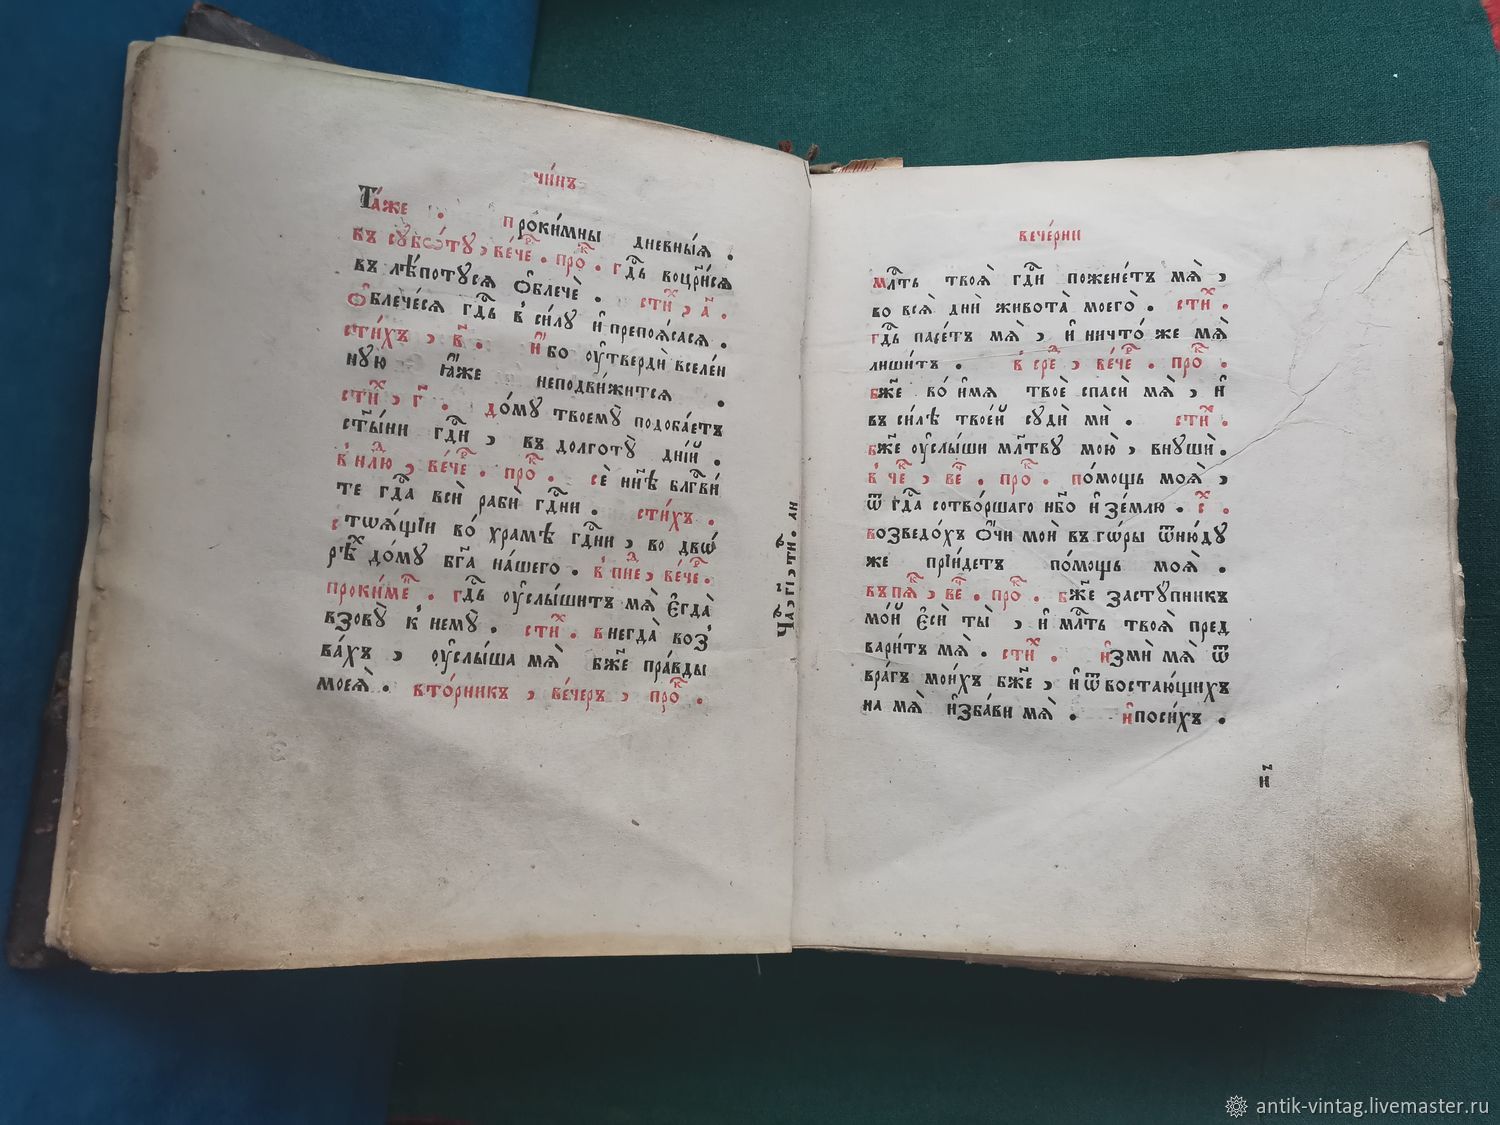 чи́нъ
Та́же . прокі́мны дневны́ѧ .
въ сꙋббѡ́тꙋ, ве́че . про . гдⷭ҇ь воцр҃и́сѧ
въ лѣ́потꙋсѧ ѻ҆блечѐ . сти́х, а҃ .
ѻ҆блече́сѧ гдⷭ҇ь в си́лꙋ и҆ препоѧ́сасѧ .
сти́хъ, в҃ . и҆́бо ᲂу҆твердѝ вселе́н
нꙋю ꙗ҆́же неподви́житсѧ .
сти́х, г҃ . до́мꙋ твоемꙋ̀ подоба́етъ
ст҃ы́ни гдⷭ҇и, въ долготꙋ̀ дні́й .
в не́дⷧ҇ю, ве́че . про . сѐ нн҃ѣ блгⷭ҇ви́
те гдⷭ҇а всѝ рабѝ гдⷭ҇ни . сти́хъ .
стоѧ́щіи во́ храмѣ гдⷭ҇ни, во двѡ́
рѣх до́мꙋ бг҃а на́шего . в пне, ве́че .
проки́ме . гдⷭ҇ь ᲂу҆слы́шитъ мѧ̀ є҆гда̀
взовꙋ̀ к не́мꙋ . сти́х . внегда̀ воз̾
ва́хъ, ᲂу҆слы́ша мѧ̀ бж҃е пра́вды
моеѧ̀ . вто́рникъ, ве́черъ, про .
вече́рни
млⷭ҇ть твоѧ̀ гдⷭ҇и пожене́тъ мѧ̀,
во всѧ̀ дни̑ живота̀ моего̀ . сти́х .
гдⷭ҇ь пасе́тъ мѧ̀, и҆ ничто́ же мѧ̀
лиши́тъ . в сре, ве́че . про .
бж҃е во́ и҆мѧ твоѐ спаси́ мѧ̀, и҆
въ си́лѣ твое́й сꙋди́ ми . сти́х .
бж҃е ᲂу҆слы́ши мл҃твꙋ мою̀, внꙋшѝ .
в че, ве . про . по́мощь моѧ̀,
ѿ гдⷭ҇а сотво́ршаго нб҃о и҆ зе́млю . с .
возведо́хъ ѻ҆́чи моѝ въ го́ры ѿню́дꙋ
же прїи́детъ по́мощь моѧ̀ .
въ пѧ, ве . про . бж҃е застꙋ́пникъ
мо́й є҆сѝ ты̀, и҆ млⷭ҇ть твоѧ̀ пред
вари́тъ мѧ̀ . сти́х . и҆зми́ мѧ ѿ
вра́гъ мои́хъ бж҃е, и҆ ѿ востаю́щихъ
на мѧ̀ и҆зба́ви мѧ̀ . и҆ поси́хъ .
и҃
antik-vintag.livemaster.ru